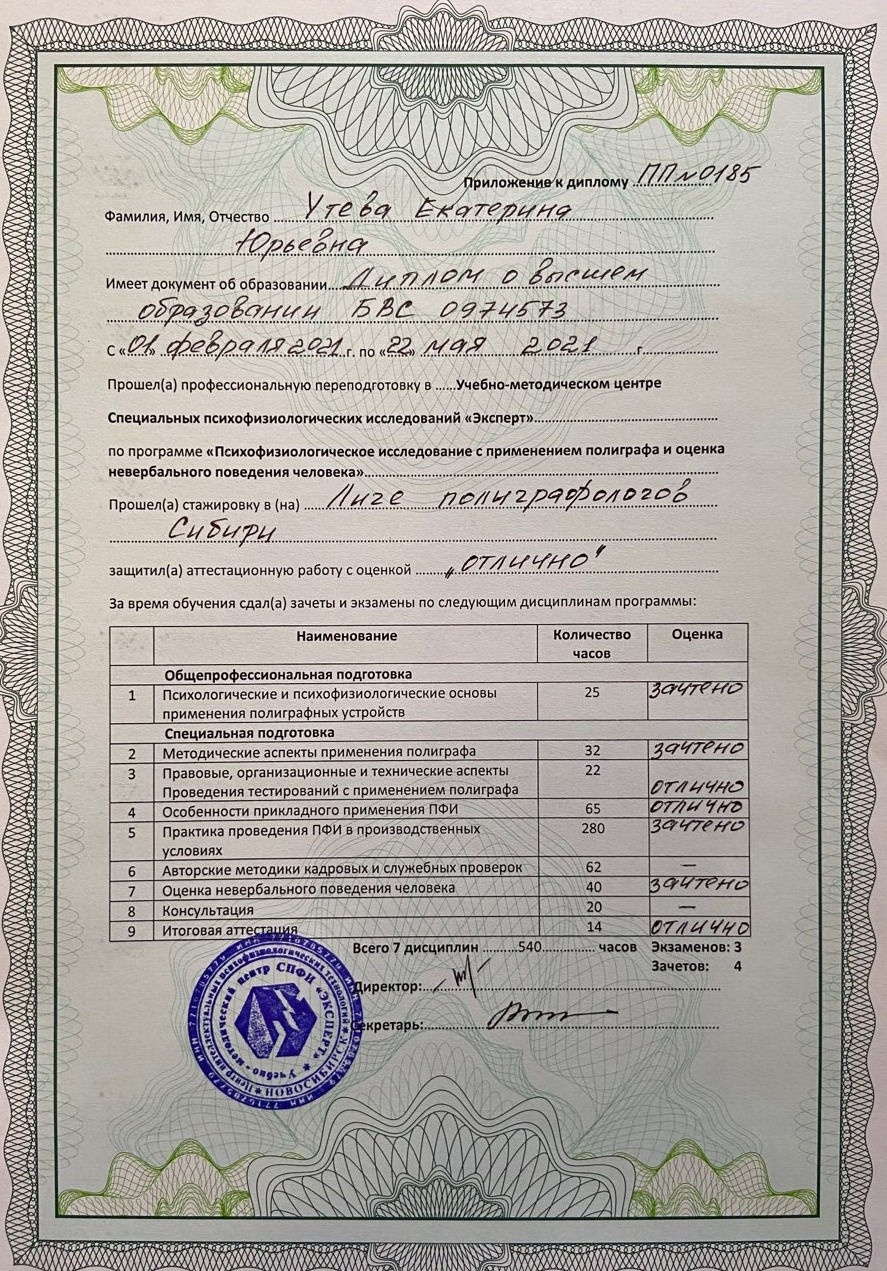 Приложение к диплому ПП№0185
Фамилия, Имя, Отчество Утева Екатерина
Юрьевна
Имеет документ об образовании Диплом о высшем
образовании БВС 0974573
С «01» февраля 2021 г. по «22» мая 2021 г.
Прошел(а) профессиональную переподготовку в ......Учебно-методическом центре
Специальных психофизиологических исследований «Эксперт»
по программе «Психофизиологическое исследование с применением полиграфа и оценка
невербального поведения человека»
Прошел(а) стажировку в (на) Лиге полиграфологов
Сибири
защитил(а) аттестационную работу с оценкой „отлично"
За время обучения сдал(а) зачеты и экзамены по следующим дисциплинам программы:
Наименование Количество часов Оценка
Общепрофессиональная подготовка
1 Психологические и психофизиологические основы 25 зачтено
применения полиграфных устройств
Специальная подготовка
2 Методические аспекты применения полиграфа 32 зачтено
3 Правовые, организационные и технические аспекты 22
Проведения тестирований с применением полиграфа отлично
4 Особенности прикладного применения ПФИ 65 отлично
5 Практика проведения ПФИ в производственных 280 зачтено
условиях
6 Авторские методики кадровых и служебных проверок 62 —
7 Оценка невербального поведения человека 40 зачтено
8 Консультация 20 —
9 Итоговая аттестация 14 отлично
Всего 7 дисциплин ..........540............ часов Экзаменов: 3
Зачетов: 4
Директор:
Секретарь:
Учебно - методический центр СПФИ «ЭКСПЕРТ»
НОВОСИБИРСК